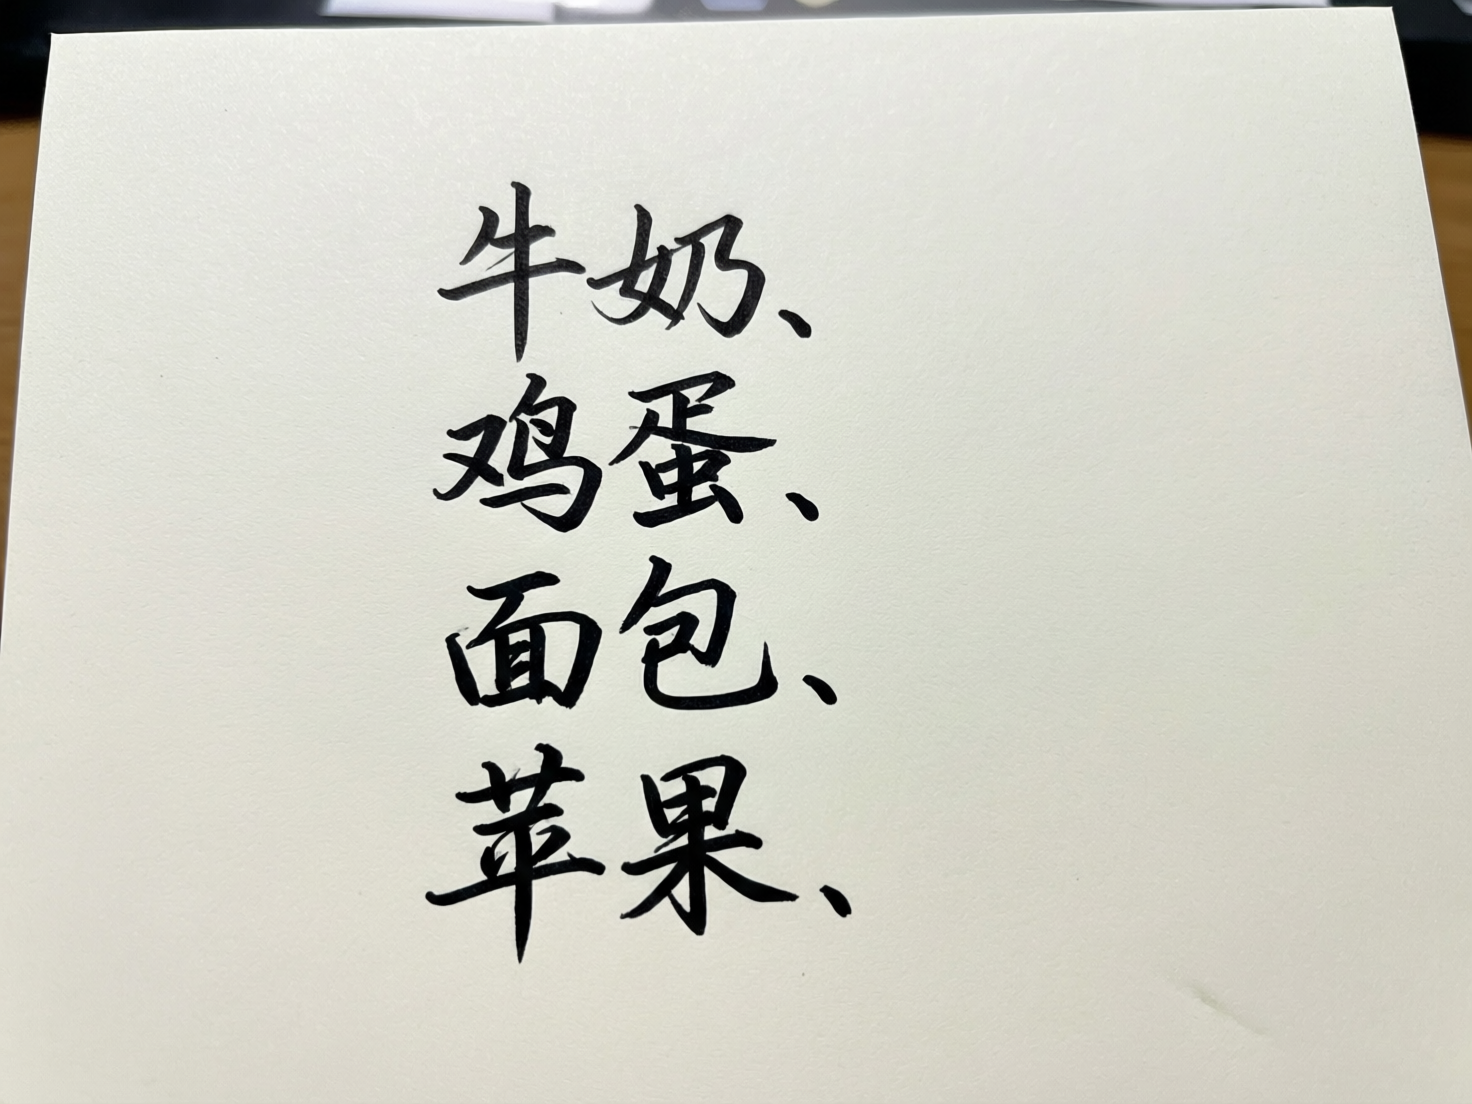 牛奶、
鸡蛋、
面包、
苹果、